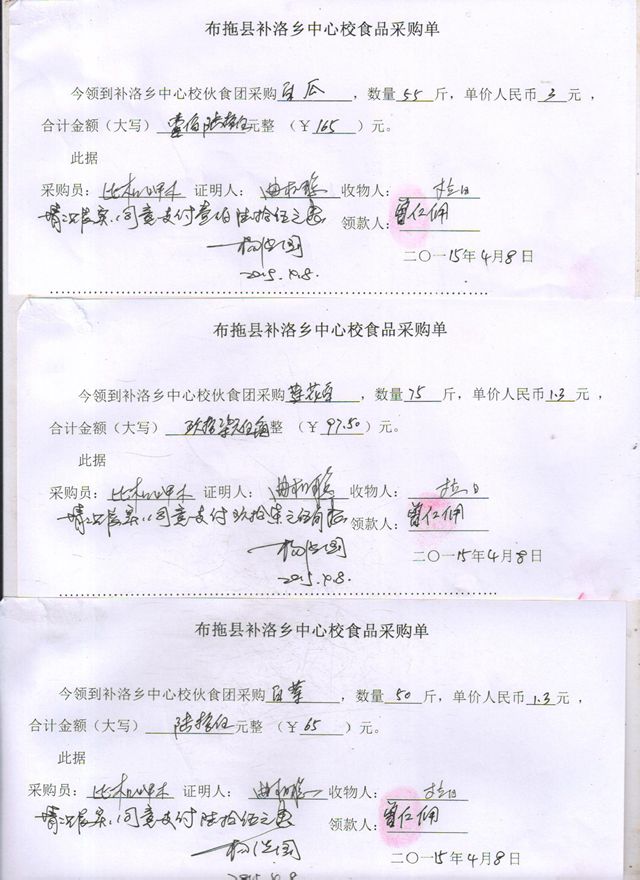 布拖县补洛乡中心校食品采购单
今领到补洛乡中心校伙食团采购 白瓜 ，数量 55 斤，单价人民币 3 元，
合计金额（大写） 壹佰陆拾伍元整 （￥165）元。
此据
采购员： 证明人： 收物人： 拉日
情况属实，同意支付壹佰陆拾伍元
领款人： 曾仁佣
二〇一15年4月8日
2015.4.8.
布拖县补洛乡中心校食品采购单
今领到补洛乡中心校伙食团采购 莲花白 ，数量 75 斤，单价人民币 1.3 元，
合计金额（大写） 玖拾柒元伍角整 （￥97.50）元。
此据
采购员： 证明人： 收物人： 拉日
情况属实，同意支付玖拾柒元伍角
领款人： 曾仁佣
二〇一15年4月8日
2015.4.8.
布拖县补洛乡中心校食品采购单
今领到补洛乡中心校伙食团采购 白菜 ，数量 50 斤，单价人民币 1.3 元，
合计金额（大写） 陆拾伍元整 （￥65）元。
此据
采购员： 证明人： 收物人： 拉日
情况属实，同意支付陆拾伍元
领款人： 曾仁佣
二〇一15年4月8日